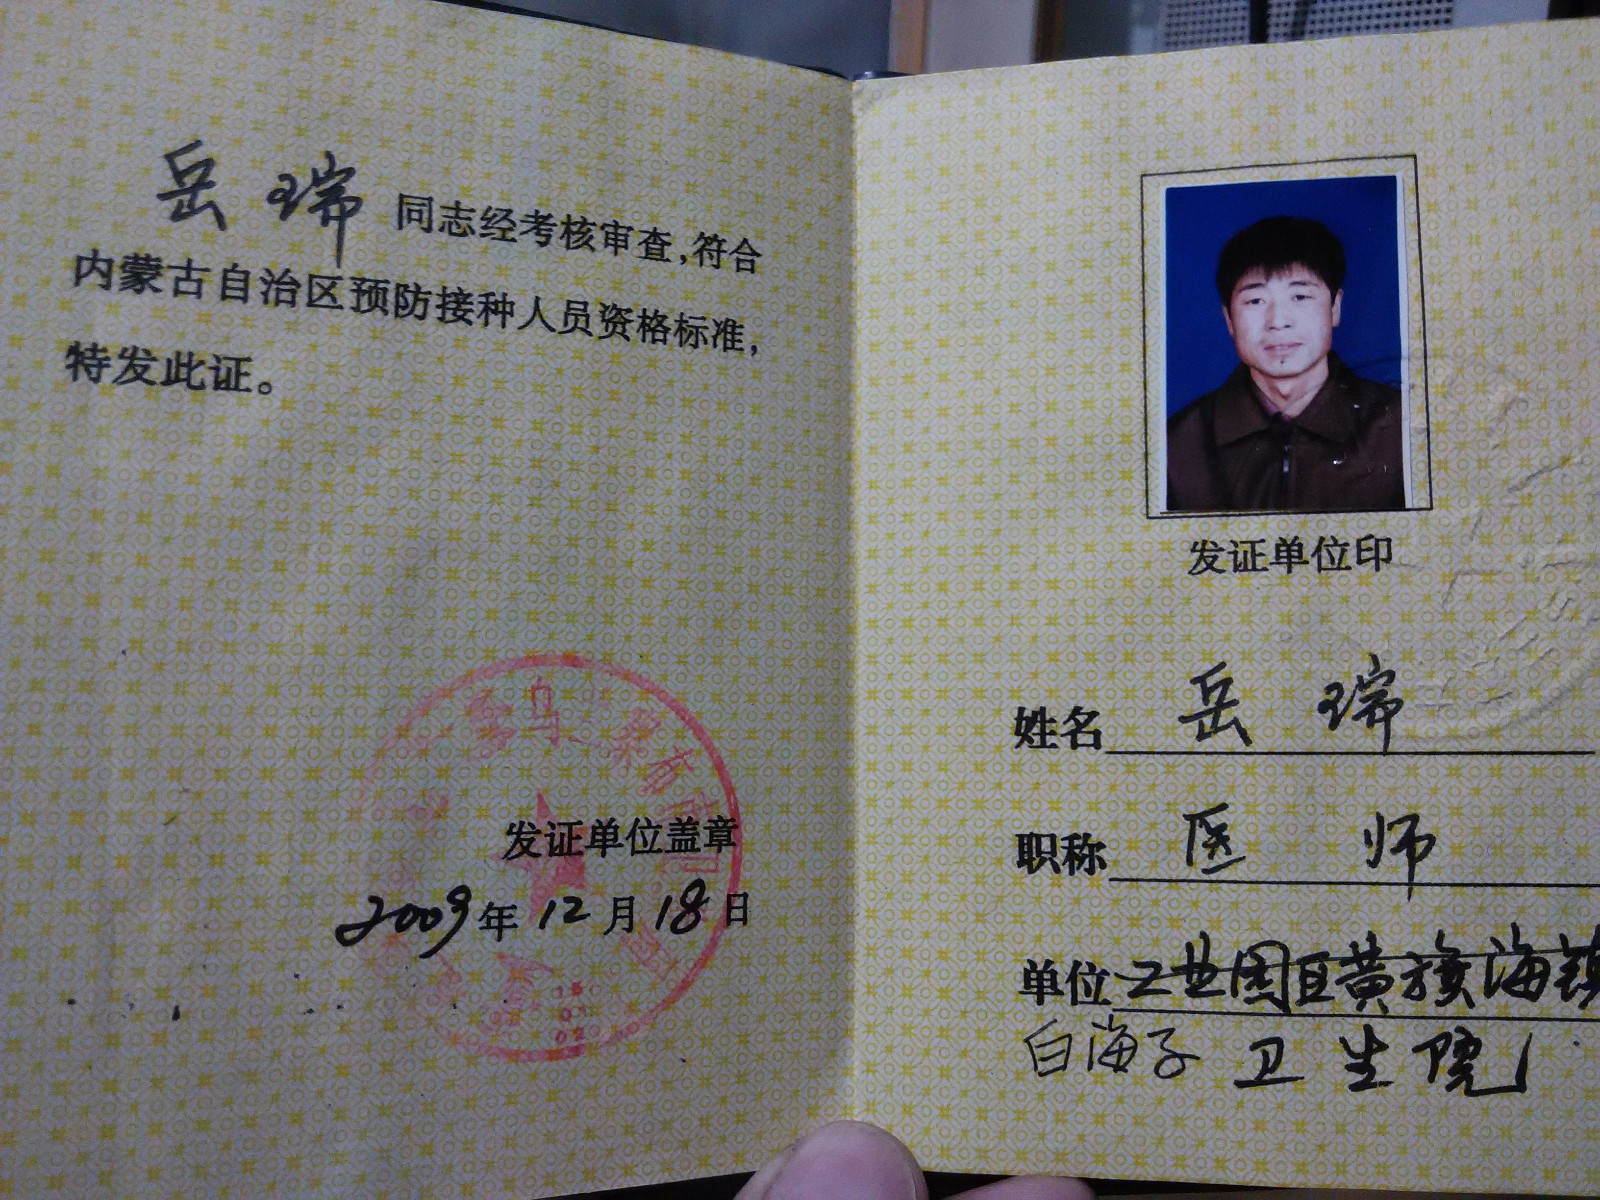 岳瑞同志经考核审查,符合
内蒙古自治区预防接种人员资格标准,
特发此证。
乌兰察布
发证单位盖章
2009年12月18日
发证单位印
姓名 岳瑞
职称 医师
单位 工业园区黄旗海镇
白海子卫生院